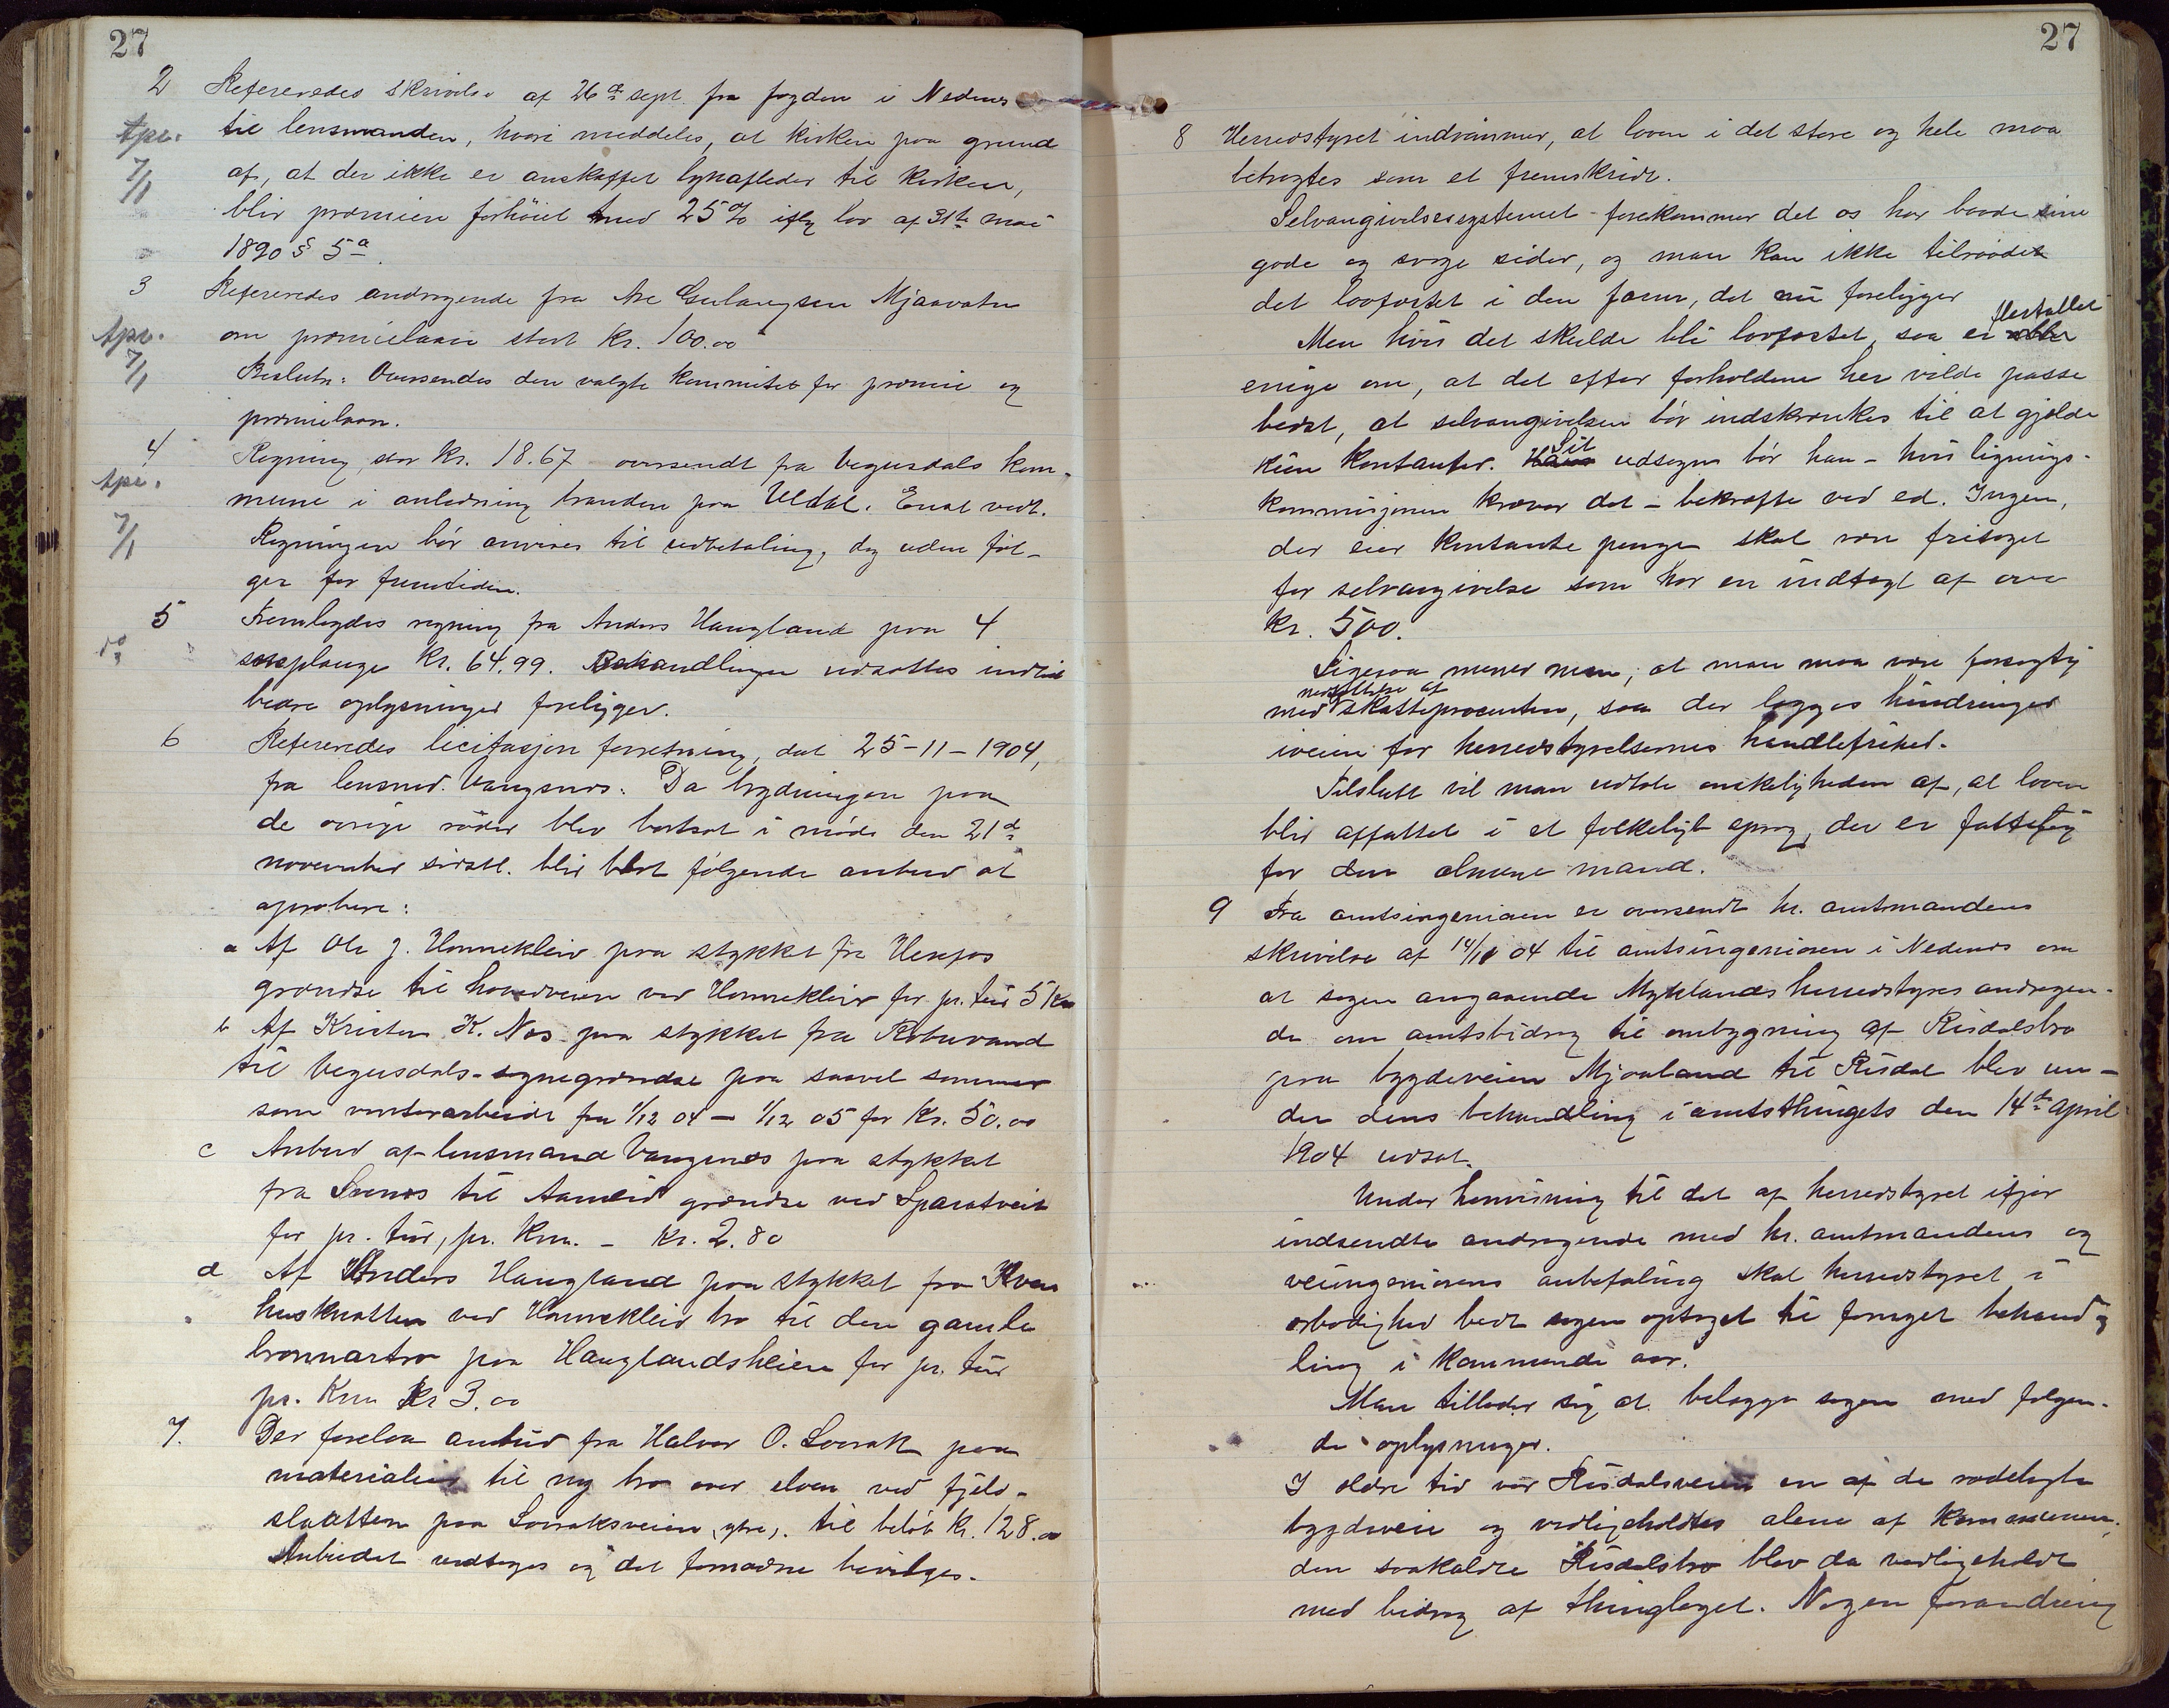 27
2 Refereredes skrivelse af 26de sept. fra fogden i Nedenes
til lensmanden, hvori meddeles, at kirken paa grund
af, at der ikke er anskaffet lynafleder til kirken,
blir præmien forhöiet med 25% iflg lov af 31te mai
1890 § 5a.
Apr.
7/1
3 Refereredes andragende fra Are Gulaugsen Mjaavatn
om præmielaan stort kr. 100.00
Beslutn: Oversendes den valgte kommitee for præmie og
præmielaan.
Apr.
7/1
4 Regning stor kr. 18.67 oversendt fra Vegusdals kom-
mune i anledning branden paa Uldal. Enst vedt.
Regningen bör anvises til udbetaling, dog uden föl-
ger for fremtiden.
Apr.
7/1
5 Fremlagdes regning fra Anders Haugland paa 4
sneplouge kr. 64.99. Behandlingen udsattes indtil
bedre oplysninger foreligger.
do
6 Refereredes licitasjons forretning, dat 25-11-1904,
fra lensmd. Vangsnes. Da brydningen paa
de övrige röder blev bortsat i möde den 21de
november sidstl. blir blot fölgende anbud at
aprobere:
a Af Ole J. Hannekleiv paa stykket fra Herefos
grændse til hovedveien ved Hannekleiv for pr. tur 5 kr
b Af Kristen K. Næs paa stykket fra Robuvand
til Vegusdals-sognegrændse paa saavel sommer
som vinterarbeide fra 1/12 04 – 1/12 05 for Kr. 50.00
c Anbud af lensmand Vangsnes paa stykket
fra Svenes til Aamlid grændse ved Sparatveit
for pr. tur, pr. Km. – Kr. 2.80
d Af Anders Haugland paa stykket fra Kven
husknatten ved Hannekleiv bro til den gamle
bronnartro paa Hauglandsheien for pr. tur
pr. Km Kr 3.00
7. Der forelaa anbud fra Halvor O. Lovrak paa
materialier til ny bro over elven ved fjeld-
slaatten paa Lovraksveien, ytre, til belöb kr. 128.00
Anbudet vedtages og det fornödne bevilges.
27
8 Herredstyret indrömmer, at loven i det store og hele maa
betragtes som et fremskridt.
Selvangivelsessystemet forekommer det os har baade sine
gode og svage sider, og man kan ikke tilraade
det lovfæstet i den form, det nu foreligger
Men hvis det skulde bli lovfæstet, saa er flertallet
enige om, at det efter forholdene her vilde passe
bedst, at selvangivelsen bör indskrænkes til at gjælde
kun kontanter. Sit udsagn bör han – hvis lignings-
kommisjonen kræver det – bekræfte ved ed. Ingen,
der eier kontante penge skal være fritaget
for selvangivelse som har en indtægt af over
Kr. 500.
Ligesaa mener man, at man maa være forsigtig
med nedsættelse af skatteprocenten, saa der lægges hindringer
iveien for herredstyrelsernes handlefrihed.
Tilslutt vil man udtale ønskeligheden af, at loven
blir affattet i et folkeligt sprog, der er fattelig
for den almene mand.
9 Fra amtsingeniøren er oversendt hr. amtmandens
skrivelse af 14/11 04 til amtsingeniøren i Nedenes om
at sagen angaaende Myklands herredstyres andragen-
de om amtsbidrag til ombygning af Risdalsbro
paa bygdeveien Mjaaland til Risdal blev un-
der dens behandling i amtsthingets den 14de April
1904 udsat.
Under henvisning til det af herredstyret ifjor
indsendte andragende med hr. amtmandens og
veiingeniørens anbefaling skal herredstyret i
ærbødighed bede sagen optaget til fornyet behand-
ling i kommende aar.
Man tillader sig at belægge sagen med følgen-
de oplysninger.
I ældre tid var Risdalsveien en af de rodelagte
bygdeveie og vedligeholdtes alene af kommunen,
den saakaldte Risdalsbro blev da vedligeholdt
med bidrag af thinglaget. Nogen forandring